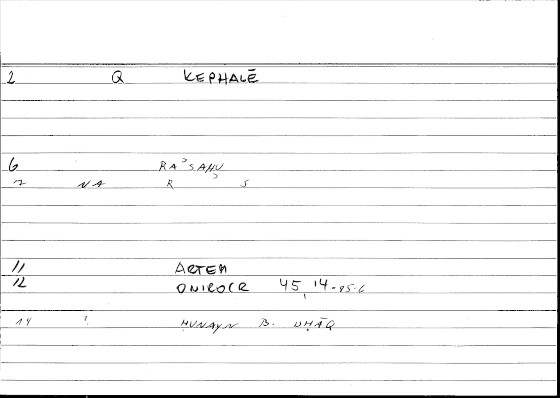 2 Q KEPHALĒ
6 RAʾSAHU
7 NA R S
11 ARTEM
12 ONIROCR 45,14-95.6
14 ḤUNAYN B.